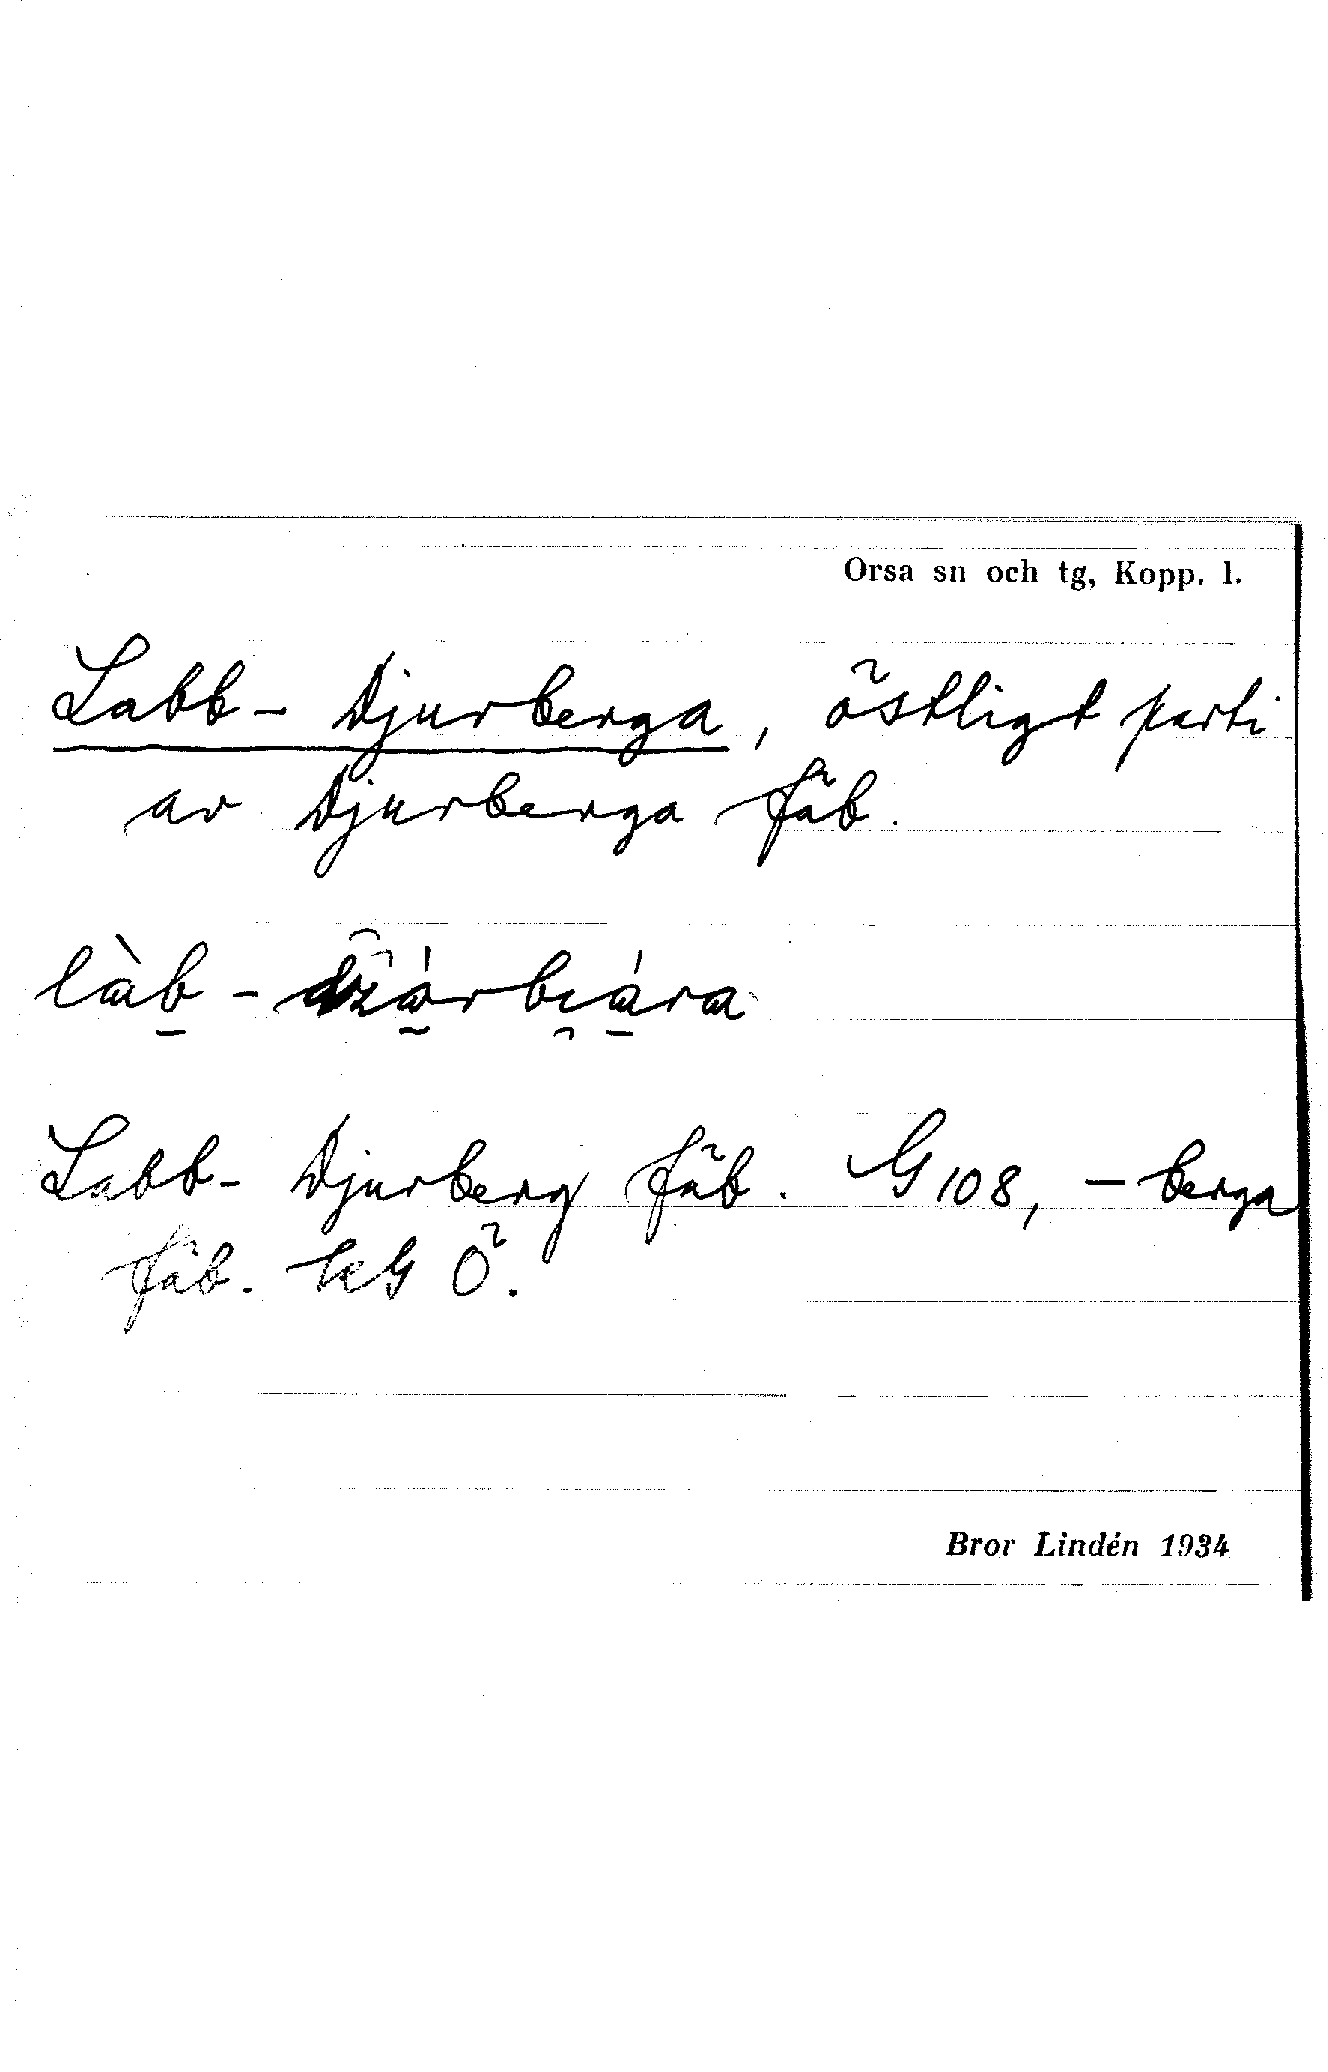 Orsa sn och tg, Kopp. l.
Labb- Djurberga, östligt parti
av Djurberga fäb.
làb - dʒárbɪára
Labb- Djurberg fäb. G 108, - berga
fäb. TkG Ö.
Bror Lindén 1934